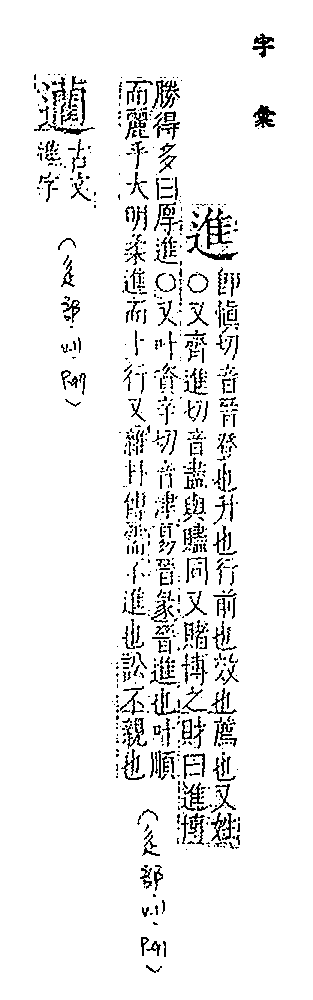 字彙
進
即慎切音晉登也升也行前也效也薦也又姓
○又齊進切音盡與贐同又賭博之財曰進博
勝得多曰厚進○又叶資辛切音津易晉彖晉進也叶順
而麗乎大明柔進而上行又雜卦傳需不進也訟不親也
(辵部.v.11.P.41)
古文
進字
(辵部.v.11.P.47)